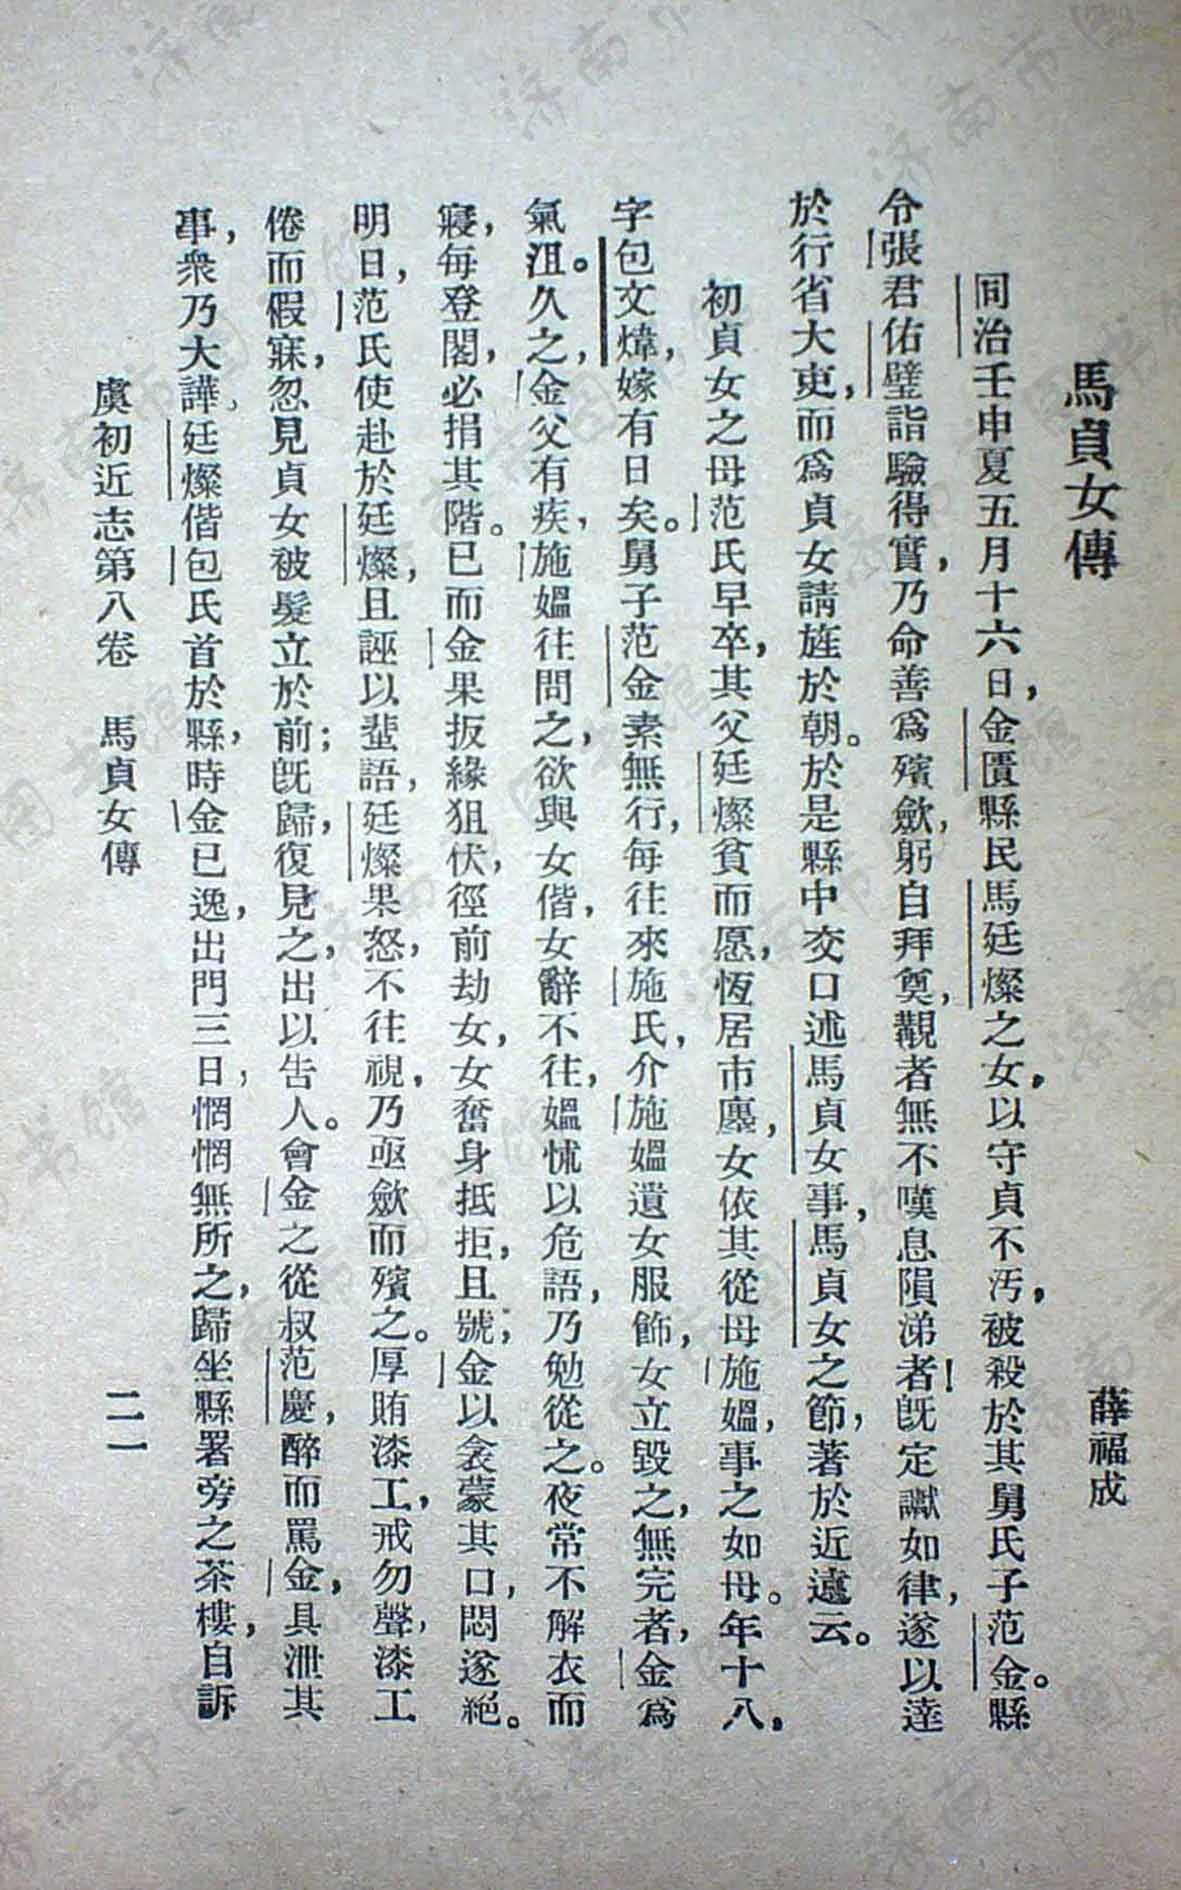 馬貞女傳
薛福成
同治壬申夏五月十六日，金匱縣民馬廷燦之女，以守貞不汚，被殺於其舅氏子范金。縣
令張君佑璧詣驗得實，乃命善爲殯歛，躬自拜奠，觀者無不嘆息隕涕者！旣定讞如律，遂以達
於行省大吏，而爲貞女請旌於朝。於是縣中交口述馬貞女事，馬貞女之節，著於近遠云。
初貞女之母范氏早卒，其父廷燦貧而愿，恆居市廛，女依其從母施媼，事之如母。年十八，
字包文煒，嫁有日矣。舅子范金素無行，每往來施氏，介施媼遺女服飾，女立毀之，無完者，金爲
氣沮。久之，金父有疾，施媼往問之，欲與女偕，女辭不往，媼怵以危語，乃勉從之。夜常不解衣而
寢，每登閣，必捐其階。已而金果扳緣狙伏，徑前劫女，女奮身抵拒，且號；金以衾蒙其口，悶遂絕。
明日，范氏使赴於廷燦，且誣以蜚語，廷燦果怒，不往視，乃亟歛而殯之。厚賄漆工，戒勿聲，漆工
倦而假寐，忽見貞女被髮立於前；旣歸，復見之，出以告人。會金之從叔范慶，醉而罵金，具泄其
事，衆乃大譁。廷燦偕包氏首於縣，時金已逸，出門三日，惘惘無所之，歸坐縣署旁之茶樓，自訴
虞初近志第八卷　馬貞女傳
二一
济南市图书馆